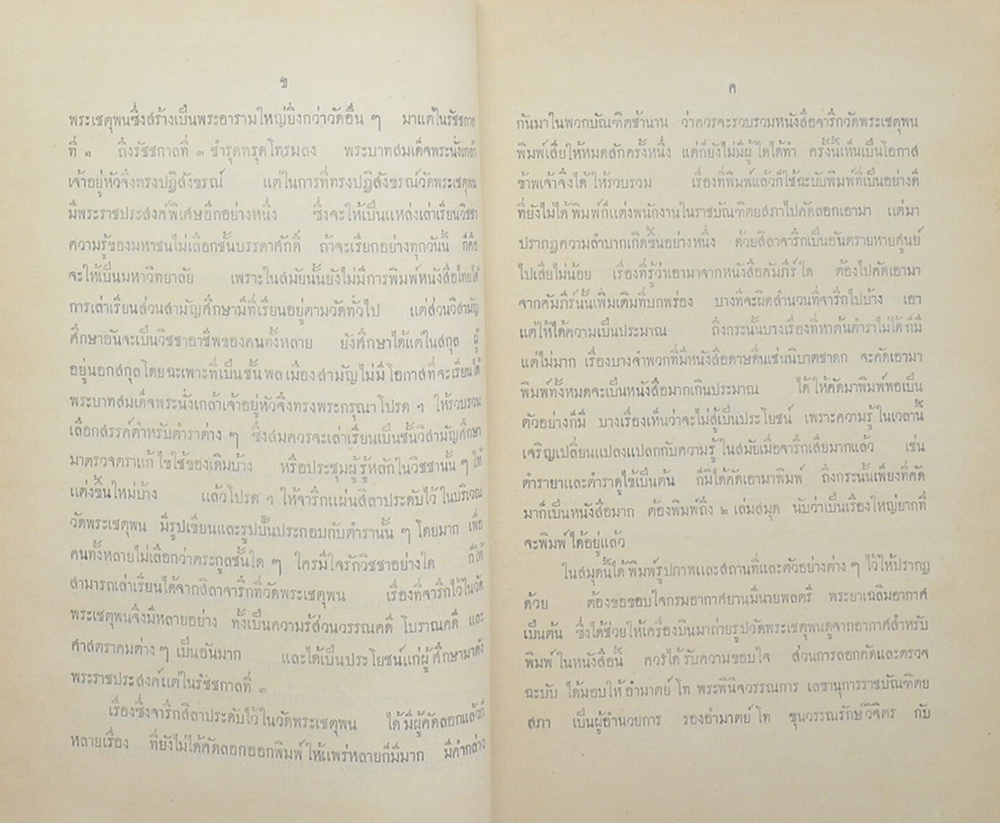 ข
พระเชตุพนซึ่งสร้างเป็นพระอารามใหญ่ยิ่งกว่าวัดอื่น ๆ มาแต่ในรัชชกาล
ที่ ๑ ถึงรัชชกาลที่ ๓ ชำรุดทรุดโทรมลง พระบาทสมเด็จพระนั่งเกล้า
เจ้าอยู่หัวจึงทรงปฏิสังขรณ์ แต่ในการที่ทรงปฏิสังขรณ์วัดพระเชตุพน
มีพระราชประสงค์พิเศษอีกอย่างหนึ่ง ซึ่งจะให้เป็นแหล่งเล่าเรียนวิชชา
ความรู้ของมหาชนไม่เลือกชั้นบรรดาศักดิ์ ถ้าจะเรียกอย่างทุกวันนี้ ก็คือ
จะให้เป็นมหาวิทยาลัย เพราะในสมัยนั้นยังไม่มีการพิมพ์หนังสือไทยได้
การเล่าเรียนส่วนสามัญศึกษามีที่เรียนอยู่ตามวัดทั่วไป แต่ส่วนวิสามัญ
ศึกษาอันจะเป็นวิชชาอาชีพของคนทั้งหลาย ยังศึกษาได้แต่ในสกุล ผู้
อยู่นอกสกุลโดยฉะเพาะที่เป็นชั้นพลเมืองสามัญไม่มีโอกาสที่จะเรียนได้
พระบาทสมเด็จพระนั่งเกล้าเจ้าอยู่หัวจึงทรงพระกรุณาโปรด ฯ ให้รวบรวม
เลือกสรรค์ตำหรับตำราต่าง ๆ ซึ่งสมควรจะเล่าเรียนเป็นชั้นวิสามัญศึกษา
มาตรวจตราแก้ไขใช้ของเดิมบ้าง หรือประชุมผู้รู้หลักในวิชชานั้น ๆ ให้
แต่งขึ้นใหม่บ้าง แล้วโปรด ฯ ให้จารึกแผ่นสิลาประดับไว้ในบริเวณ
วัดพระเชตุพน มีรูปเขียนและรูปปั้นประกอบกับตำรานั้น ๆ โดยมาก เพื่อ
คนทั้งหลายไม่เลือกว่าตระกูลชั้นใด ๆ ใครมีใจรักวิชชาอย่างใด ก็ให้
สามารถเล่าเรียนได้จากสิลาจารึกที่วัดพระเชตุพน เรื่องที่จารึกไว้ในวัด
พระเชตุพนจึงมีหลายอย่าง ทั้งเป็นความรู้ส่วนวรรณคดี โบราณคดี และ
ศาสตราคมต่าง ๆ เป็นอันมาก และได้เป็นประโยชน์แก่ผู้ศึกษามาดัง
พระราชประสงค์แต่ในรัชชกาลที่ ๓
เรื่องซึ่งจารึกสิลาประดับไว้ในวัดพระเชตุพน ได้มีผู้คัดลอกแล้วก็
หลายเรื่อง ที่ยังไม่ได้คัดลอกออกพิมพ์ให้แพร่หลายก็มีมาก มีคำกล่าว
ค
กันมาในพวกบัณฑิตช้านาน ว่าควรจะรวบรวมหนังสือจารึกวัดพระเชตุพน
พิมพ์เสียให้หมดสักครั้งหนึ่ง แต่ก็ยังไม่มีผู้ใดได้ทำ ครั้งนี้เห็นเป็นโอกาส
ข้าพเจ้าจึงได้ให้รวบรวม เรื่องที่พิมพ์แล้วก็ใช้ฉะบับพิมพ์ที่เป็นอย่างดี
ที่ยังไม่ได้พิมพ์ก็แต่งพนักงานในราชบัณฑิตยสภาไปคัดลอกเอามา แต่มา
ปรากฏความลำบากเกิดขึ้นอย่างหนึ่ง ด้วยสิลาจารึกเป็นอันตรายหายศูนย์
ไปเสียไม่น้อย เรื่องที่รู้ว่าเอามาจากหนังสือคัมภีร์ใด ต้องไปคัดเอามา
จากคัมภีร์นั้นเพิ่มเติมที่บกพร่อง บางที่จะผิดสำนวนที่จารึกไปบ้าง เอา
แต่ให้ได้ความเป็นประมาณ ถึงกระนั้นบางเรื่องที่หาต้นตำราไม่ได้ก็มี
แต่ไม่มาก เรื่องบางจำพวกที่มีหนังสือดาษดื่นเช่นนิบาตชาดก จะคัดเอามา
พิมพ์ทั้งหมดจะเป็นหนังสือมากเกินประมาณ ได้ให้คัดมาพิมพ์พอเป็น
ตัวอย่างก็มี บางเรื่องเห็นว่าจะไม่สู้เป็นประโยชน์ เพราะความรู้ในเวลานี้
เจริญเปลี่ยนแปลงแปลกกับความรู้ในสมัยเมื่อจารึกเสียมากแล้ว เช่น
ตำรายาและตำราดูไข้เป็นต้น ก็มิได้คัดเอามาพิมพ์ ถึงกระนั้นเพียงที่คัด
มาก็เป็นหนังสือมาก ต้องพิมพ์ถึง ๒ เล่มสมุด นับว่าเป็นเรื่องใหญ่ยากที่
จะพิมพ์ได้อยู่แล้ว
ในสมุดนี้ได้พิมพ์รูปภาพและสถานที่และตัวอย่างต่าง ๆ ไว้ให้ปรากฏ
ด้วย ต้องขอขอบใจกรมอากาศยานมีนายพลตรี พระยาเฉลิมอากาศ
เป็นต้น ซึ่งได้ช่วยให้เครื่องบินมาถ่ายรูปวัดพระเชตุพนดูจากอากาศสำหรับ
พิมพ์ในหนังสือนี้ ควรได้รับความขอบใจ ส่วนการลอกคัดและตรวจ
ฉะบับ ได้มอบให้อำมาตย์โท พระพินิจวรรณการ เลขานุการราชบัณฑิตย
สภา เป็นผู้อำนวยการ รองอำมาตย์โท ขุนวรรณรักษ์วิจิตร กับ